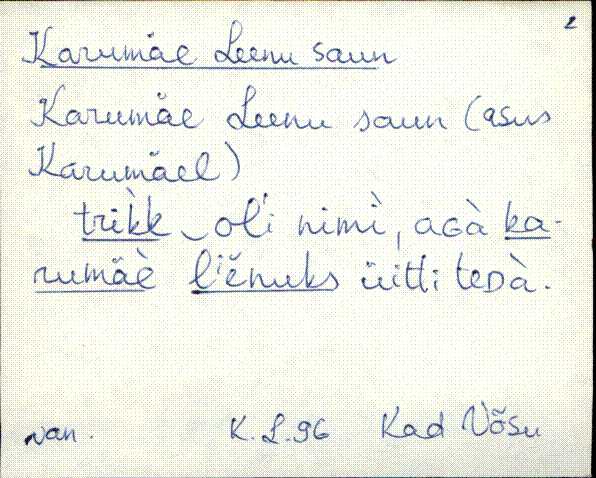 2
Karumäe Leenu saun
Karumäe Leenu saun (asus
Karumäel)
trìk̀k ‿ ol'i nimì, aGà ka-
rumäè lìĕnuks üitti teDà.
van. K. L. 96 Kad Võsu